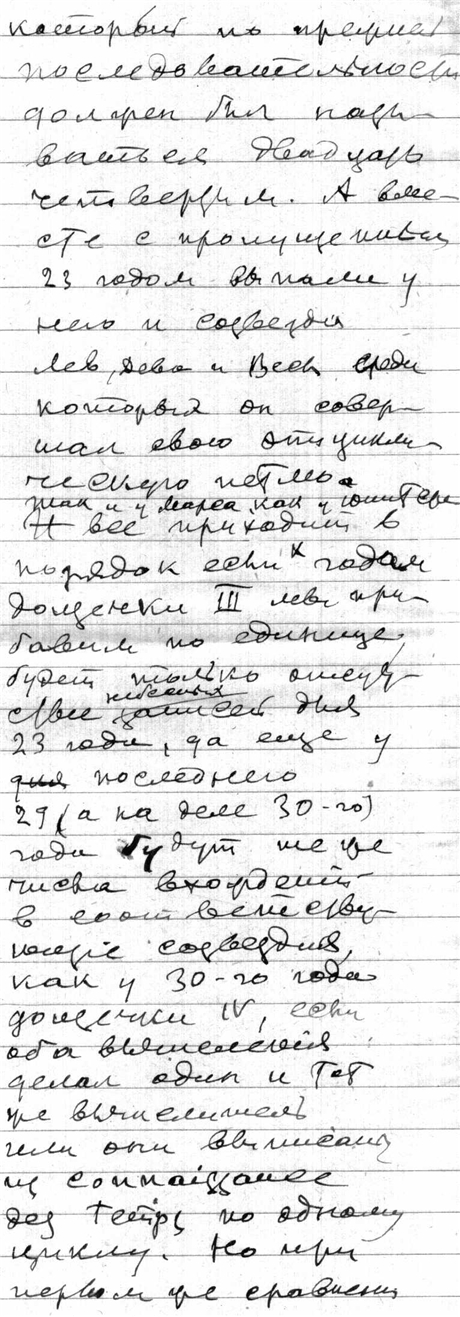 который по прежней
последовательности
должен был назы-
ваться двадцать
четвертым. А вме-
сте с пропущенным
23 годом выпали у
него и созвездия
Лев, Дева и Весы, среди
которых он совер-
шал свою эпицикли-
ческую петлю.
так и у Марса, как у Юпитера
И все приходит в
порядок если к годам
дощечки III мы при-
бавим по единице,
будет только отсут-
ствие небесных записей для
23 года, да еще у
для последнего
29 (а на деле 30-го)
года будут те же
числа вхождений
в соответству-
ющие созвездия,
как у 30-го года
дощечки IV, если
оба вычисления
делал один и тот
же вычислитель
или они выписаны
из Connaissance
des Temps по одному
циклу. Но при
первом же сравнении